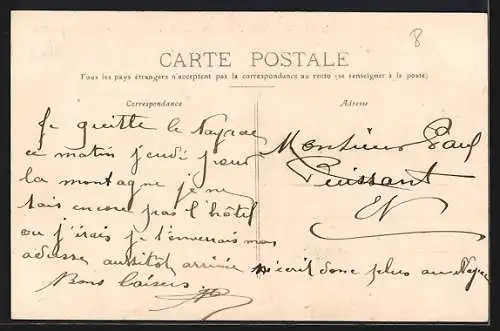 8
CARTE POSTALE
Tous les pays étrangers n'acceptent pas la correspondance au recto (se renseigner à la poste)
Correspondance
Je quitte le Nayrac
ce matin jeudi pour
la montagne je ne
sais encore pas l'hôtel
ou j'irais je t'enverrais mon
adresse aussitot arrivée n'écrit donc plus au Nayrac
Bons baisers
Adresse
Monsieur Paul
Puissant
EV